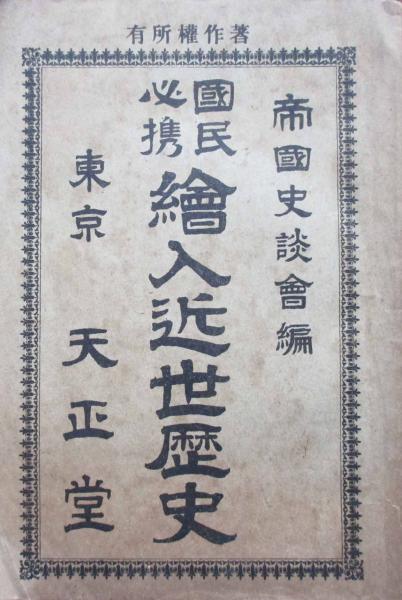 著作權所有
帝國史談會編
國民
必携
繪入近世歴史
東京 天正堂